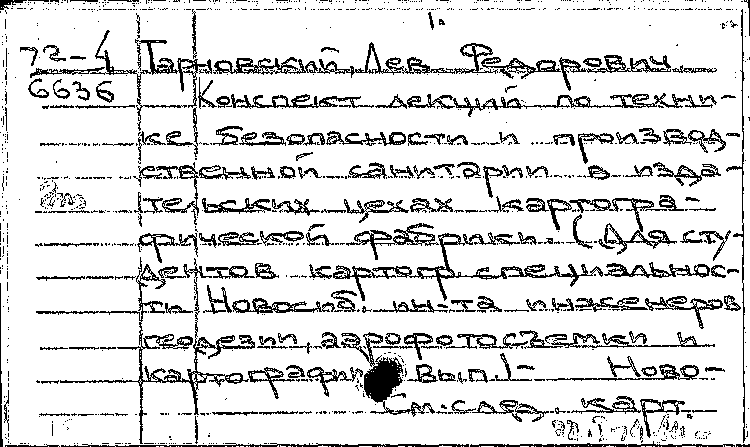 1.
72-4 Тарновский, Лев Федорович.
6636 Конспект лекций по техни-
ке безопасности и производ-
ственной санитарии в изда-
тельских цехах картогра-
фической фабрики. (Для сту-
дентов картогр. специальнос-
ти Новосиб. ин-та инженеров
геодезии, аэрофотосъемки и
картографии Вып. 1- Ново-
См. след. карт.